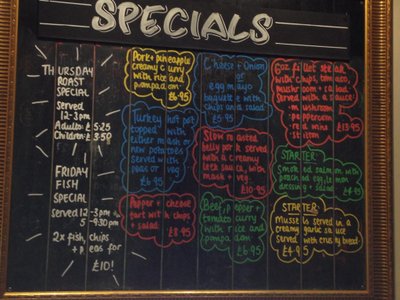 SPECIALS
THURSDAY
ROAST
SPECIAL
Served
12-3pm
Adults: £5.25
Children: £3.50
FRIDAY
FISH
SPECIAL
served 12-3pm
5-9:30pm
2x fish, chips
+ peas for
£10!
Pork + pineapple
creamy curry
with rice and
pompadom
£6.95
Turkey hot pot
topped with
either mash or
new potatoes
Served with
peas or veg
£6.95
Pepper + cheese
tart with chips
+ salad
£8.95
Cheese + Onion
or
egg mayo
baguette with
chips and salad
£5.95
Slow roasted
belly pork served
with a creamy
leek sauce, with
mash + veg.
£10.95
Beef, pepper +
tomato curry
with rice and
pompadom
£6.95
6oz fillet steak
with chips, tomato,
mushroom + salad
Served with a sauce:
- mushroom
- peppercorn
- red wine
- stilton
£13.95
STARTER:
Smoked salmon with
poached egg, lemon
dressing + salad
£4.95
STARTER:
Mussels served in a
creamy garlic sauce
served with crusty bread
£4.95